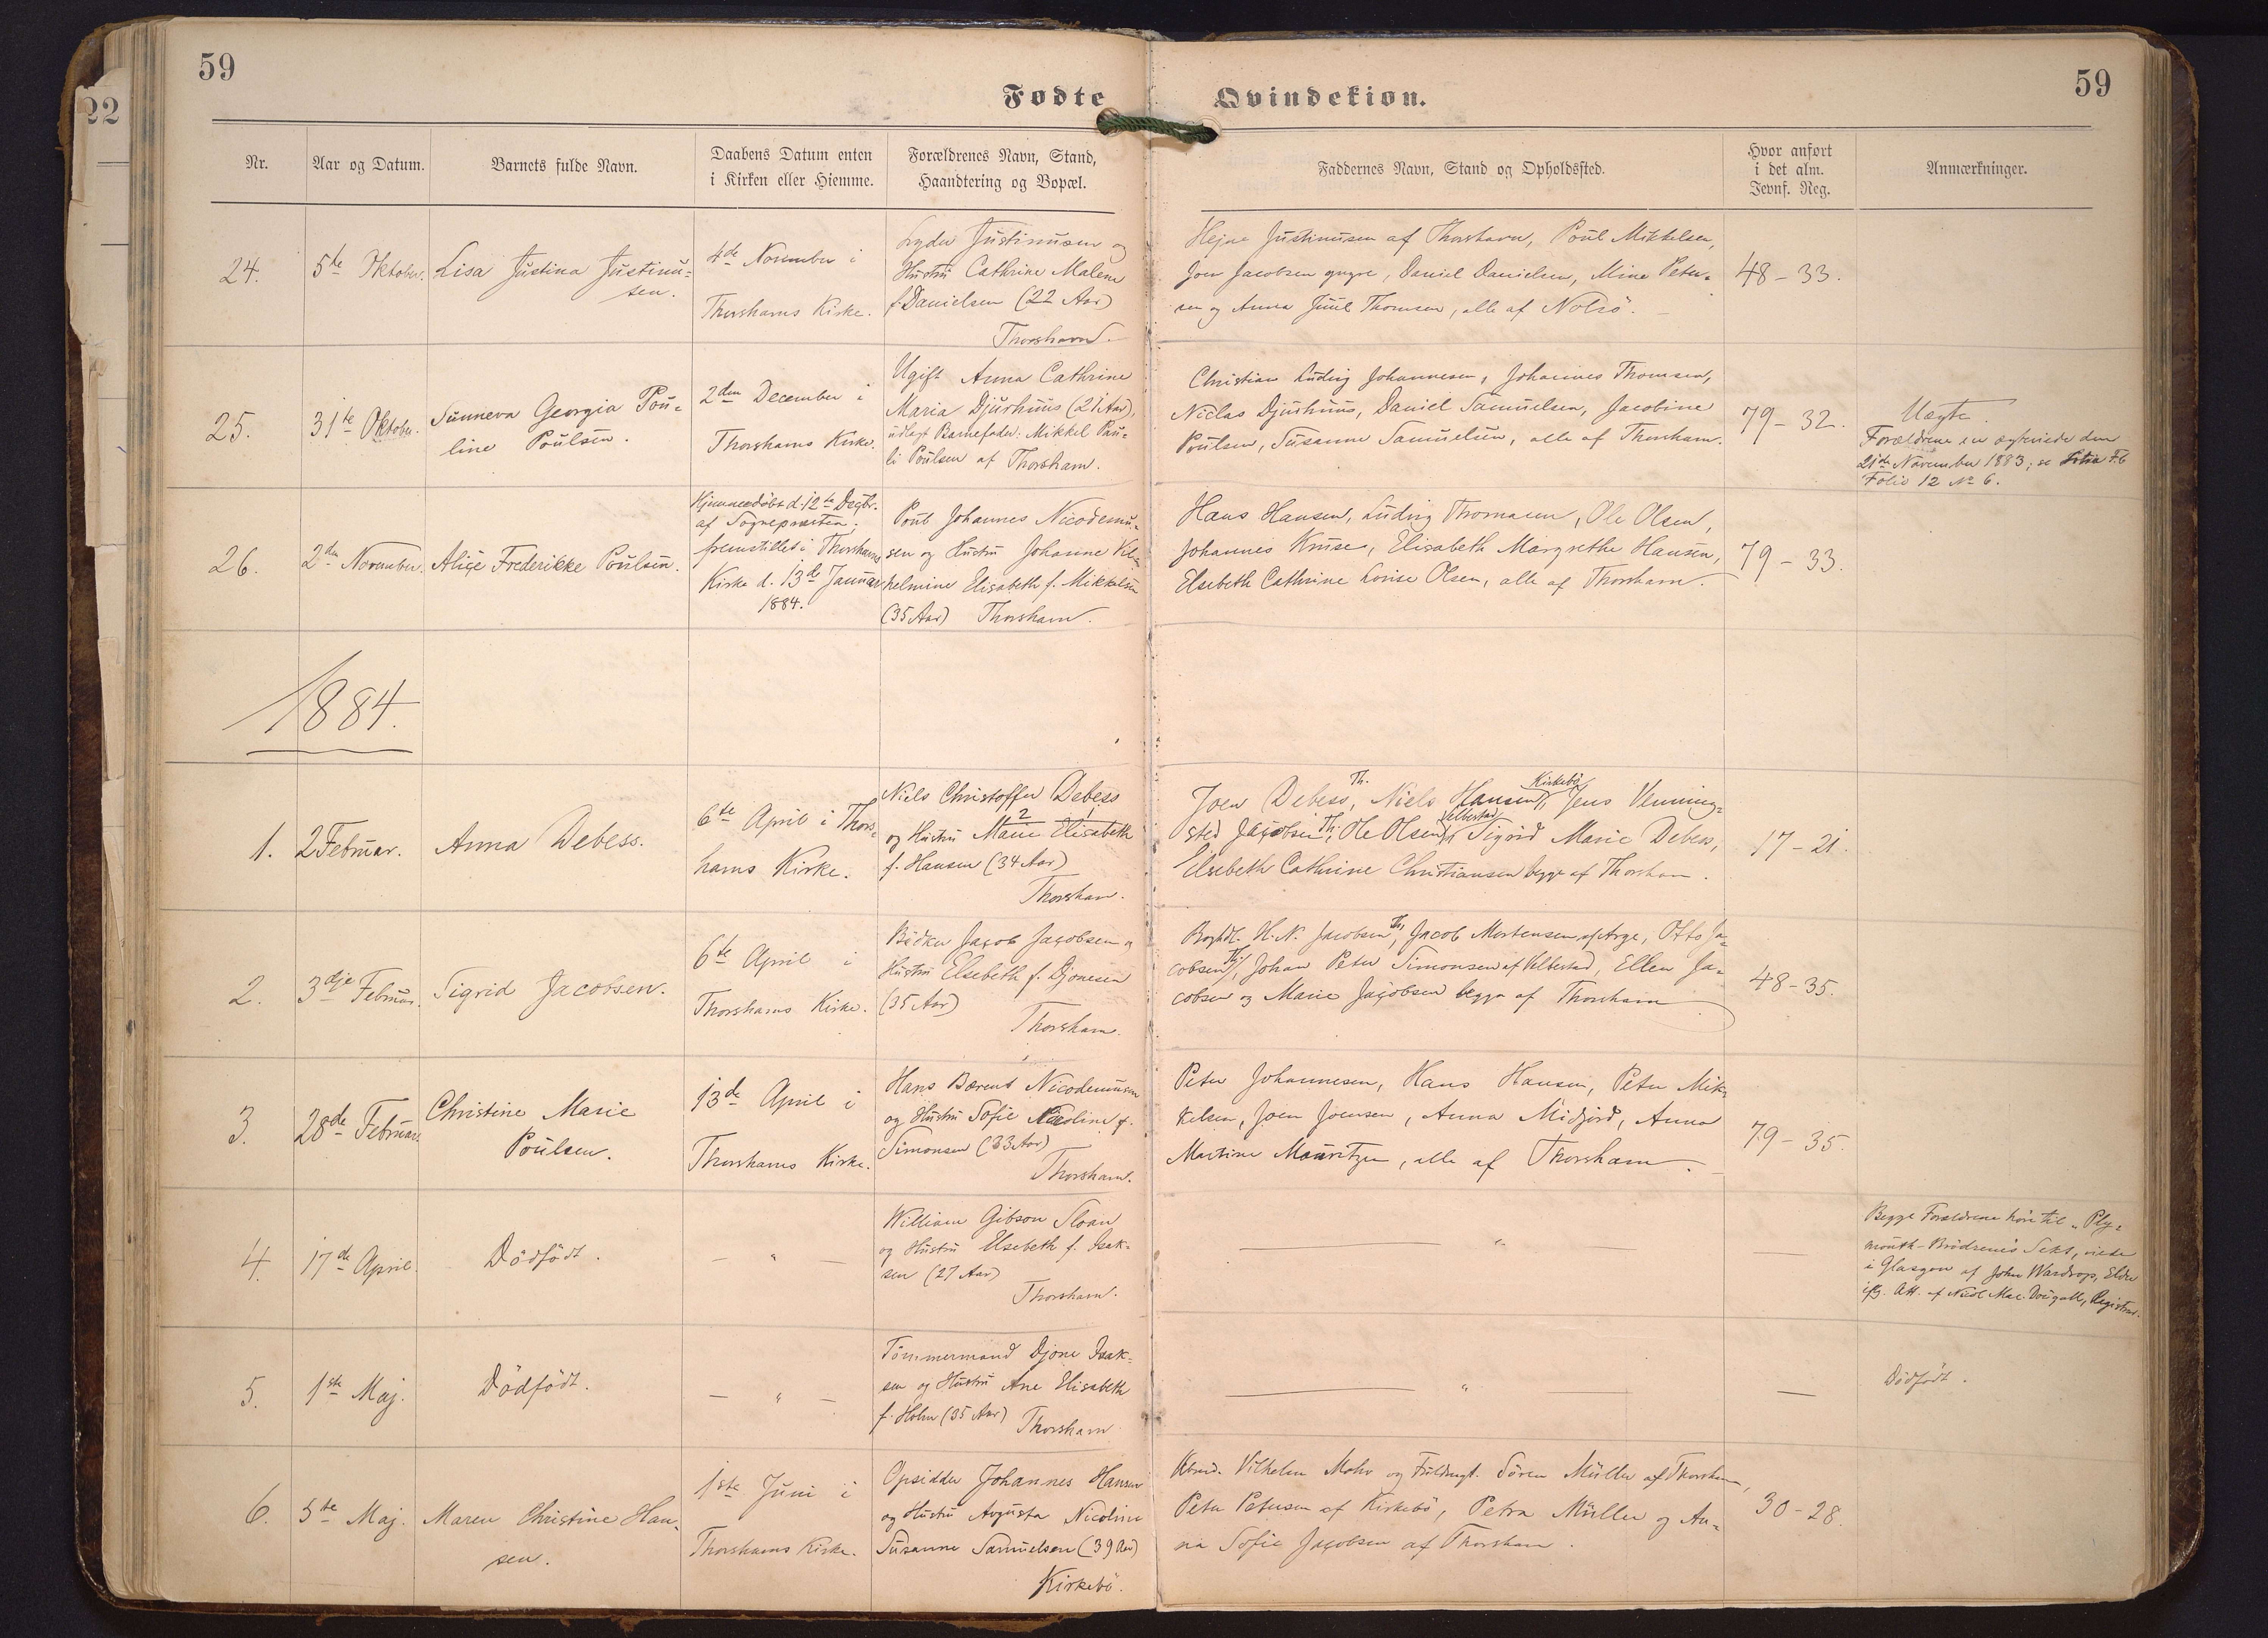 59
59
22
Fødte
Qvindekiøn.
Nr.
Aar og Datum.
Barnets fulde Navn.
Daabens Datum enten
i Kirken eller Hiemme.
Forældrenes Navn, Stand,
Haandtering og Bopæl.
Faddernes Navn, Stand og Opholdssted.
Hvor anført
i det alm.
Jevnf. Reg.
Anmærkninger.
24.
5te Oktober.
Lisa Justina Justinu-
sen.
4de November i
Thorshavns Kirke.
Justinusen og
Hustru Cathrine Malene
f. Danielsen (22 Aar)
Thorshavn.
Hejne Justinusen af Thorshavn, Poul Mikkelsen,
Joen Jacobsen yngre, Daniel Danielsen, Mine Peter-
sen og Anna Juul Thomsen, alle af Nolsö.
48-33.
25.
31te Oktober.
Sunneva Georgia Pou-
line Poulsen.
2den December i
Thorshavns Kirke.
Ugift Anna Cathrine
Maria Djurhuus (21 Aar),
udlagt Barnefader: Mikkel Pau-
li Poulsen af Thorshavn.
Christian Ludvig Johannesen, Johannes Thomsen,
Niclas Djurhuus, Daniel Samuelsen, Jacobine
Poulsen, Susanne Samuelsen, alle af Thorshavn.
79-32.
Uægte.
Forældrene ere ægteviede den
21de November 1883; se F.6
Folio 12 No 6.
26.
2den November.
Alice Frederikke Poulsen.
Hjemmedöbt d. 12te Decbr.
af Sognepræsten;
fremstillet i Thorshavns
Kirke d. 13de Januar
1884.
Poul Johannes Nicodemu-
sen og Hustru Johanne Vil-
helmine Elisabeth f. Mikkelsen
(35 Aar) Thorshavn.
Hans Hansen, Ludvig Thomasen, Ole Olsen,
Johannes Kruse, Elisabeth Margrethe Hansen,
Elsebeth Cathrine Lovise Olsen, alle af Thorshavn.
79-33.
1884.
1.
2 Februar.
Anna Debess.
6te April i Thors-
havns Kirke.
Niels Christoffer Debess
2 1
og Hustru Marie Elisabeth
f. Hansen (34 Aar)
Thorshavn.
Th. Kirkebö
Joen Debess, Niels Hansen, Jens Venning-
Th. Velbestad
sted Jacobsen, Ole Olsen, Sigrid Marie Debess,
Elsebeth Cathrine Christiansen begge af Thorshavn.
17-21.
2.
3dje Februar.
Sigrid Jacobsen.
6te April i
Thorshavns Kirke.
Bödker Jacob Jacobsen og
Hustru Elsebeth f. Djonesen
(35 Aar)
Thorshavn.
Boghdl. H. N. Jacobsen Th, Jacob Mortensen af Arge, Otto Ja-
cobsen Th, Johan Peter Simonsen af Velbestad, Ellen Ja-
cobsen og Marie Jacobsen begge af Thorshavn
48-35.
3.
28de Februar
Christine Marie
Poulsen.
13de April i
Thorshavns Kirke.
Hans Bærent Nicodemusen
og Hustru Sofie Nicoline f.
Simonsen (33 Aar)
Thorshavn.
Peter Johannesen, Hans Hansen, Peter Mik-
kelsen, Joen Joensen, Anna Midjord, Anna
Martine Mouritzen, alle af Thorshavn.
79-35.
4.
17de April.
Dödfödt.
— " —
William Gibson Sloan
og Hustru Elsebeth f. Isak-
sen (27 Aar)
Thorshavn.
— " —
—
Begge Forældrene höre til "Ply-
mouth-Brödrene's Sekt, viede
i Glasgow af John Wardrop, Elder
ifg. Att. af Mac. Dougall, Registrar.
5.
1ste Maj.
Dödfödt.
— " —
Tömmermand Djone Isak-
sen og Hustru Ane Elisabeth
f. Holm (35 Aar) Thorshavn
— " —
—
Dödfödt.
6.
5te Maj.
Maren Christine Han-
sen.
1ste Juni i
Thorshavns Kirke.
Opsidder Johannes Hansen
og Hustru Avgusta Nicoline
Susanne Samuelsen (39 Aar)
Kirkebö.
Vilhelm Mohr og Fuldmgt. Sören Müller af Thorshavn,
Peter Petersen af Kirkebö, Petra Müller og An-
na Sofie Jacobsen af Thorshavn.
30-28.